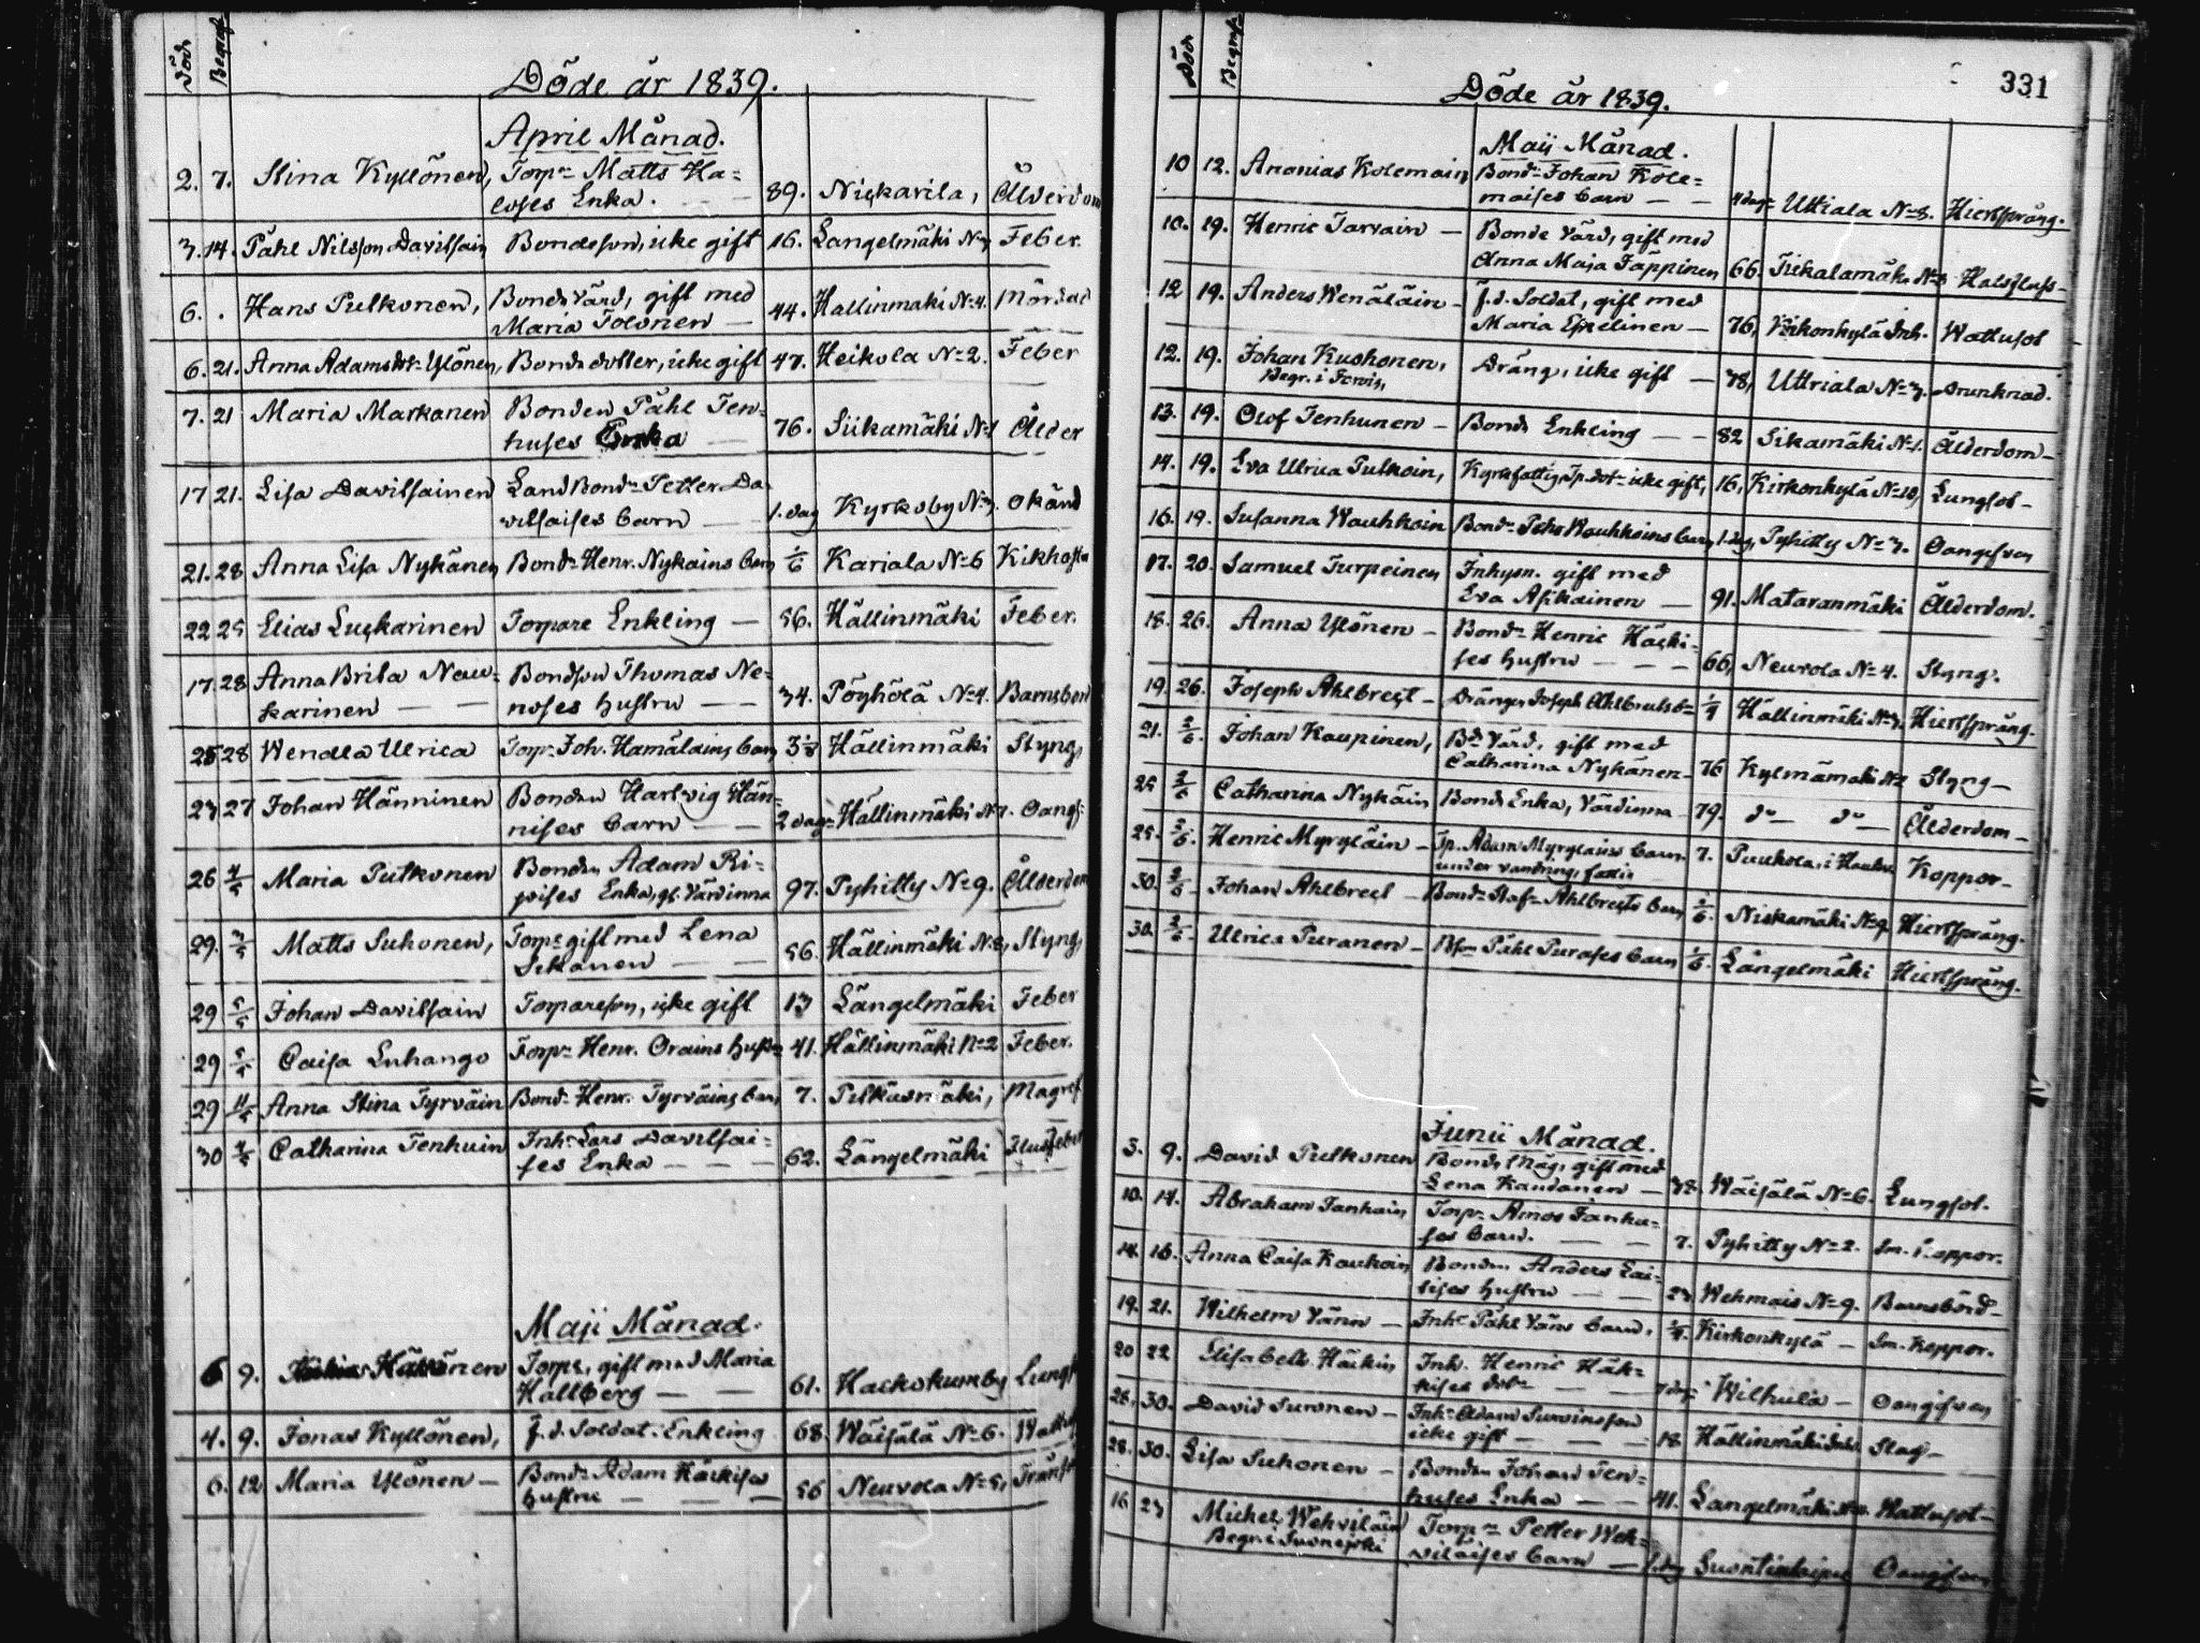 Död Begraf
Döde år 1839.
April Månad.
2. 7. Stina Kyllönen, Torp:n Matts Ha=
loses Enka. 89. Niskarila, Ålderdom
3. 14. Påhl Nilsson Davilsain Bondeson, icke gift 16. Langelmäki Feber.
6. . Hans Pulkonen, Bonde Värd, gift med
Maria Tolonen 44. Hallinmaki N:4. Mördad
6. 21. Anna Adamsdr Ylönen, Bonde dotter, icke gift 47. Heikola N:2. Feber
7. 21 Maria Markanen Bonden Påhl Ten=
huses Enka 76. Siikamäki N:1 Ålder
17 21. Lisa Davilsainen Land Bond:n Petter Da
vilsaises barn 1. dag Kyrkoby Okänd
21. 28 Anna Lisa Nykänen Bond:n Henr. Nykains barn 1/6 Kariala N:6 Kikhosta
22 25 Elias Luckarinen Torpare Enkling 56. Hällinmäki Feber.
17. 28 Anna Brita Neu=
karinen Bondson Thomas Ne=
noses hustru 34. Pöyhölä N:4. Barnsbörd
25 28 Wendla Ulrica Torp. Joh. Hamäläins barn Hällinmäki Styng
23 27 Johan Hänninen Bonden Hartvig Hän=
nises barn 2 dagr Hällinmäki N:7. Oangif
26 4/5 Maria Putkonen Bonden Adam Ri=
poises Enka, gl. Värdinna 97. Pyhitty N:9. Ålderdom
29. Matts Suhonen, Torp:r gift med Lena
56. Hällinmäki N:8, Styng
29 5/5 Johan Davilsain Torpareson, icke gift 13 Längelmäki Feber
29 5/5 Caisa Luhango Torp:n Henr. Orains hustru 41. Hällinmäki N:2 Feber.
29 11/5 Anna Stina Tyrväin Bond:n Henr. Tyrväins barn 7. Pelkäsmäki, Magref
30 Catharina Tenhuin Inh:n Lars Davilsai=
ses Enka 62. Längelmäki Flussfeber
Maji Månad.
6 9. Torp:r, gift med Maria
Hallberg 61. Hackokumby Lungs
4. 9. Jonas Kyllönen, f.d. Soldat. Enkling 68. Wäisälä N:6. Wattus
6. 12 Maria Ylönen Bond:n Adam Häckises
hustru 56 Neuvola N:5,
Död Begraf
331
Döde år 1839.
Maij Månad.
10 12. Ananias Kolemain Bond:n Johan Kole=
maises barn 4 dagr Uttiala N:8. Hiertspräng.
10. 19. Henric Tarvain Bonde Värd, gift med
Anna Maja Jäppinen 66. Halsfluss
12 19. Anders Wenäläin f.d. Soldat, gift med
Maria Eskelinen 76, Kirkonkylä Inh. Wattusot
12. 19. Johan Kuohonen,
Begr. i Jorois, Dräng, icke gift 38, Uttriala N:3. Drunknad.
13. 19. Olof Tenhunen Bonde Enkling 82 Sikamäki N:1. Ålderdom
14. 19. Eva Ulrica Pulkoin, Kyrkofattig Tp.dotr icke gift, 16, Kirkonkylä N:10, Lungsot
16. 19. Susanna Wauhkoin Bond:n Pehr Wauhkoins barn 1. dag, Pyhitty N:3. Oangifven
17. 20. Samuel Turpeinen Inhysn. gift med
Eva Asikainen 91. Mataranmäki Ålderdom.
18. 26. Anna Ylönen Bond:n Henric Häcki=
ses hustru 66, Neuvola N:4. Styng.
19. 26. Joseph Ahlbrect Drängen Joseph Ahlbrects b:n 1/4 Hällinmäki Hiertspräng.
21. 2/6. Johan Kaupinen, B:de Värd, gift med
Catharina Nykänen 76 Kylmämäki Styng
25 2/6 Catharina Nykäin Bonde Enka, Värdinna 79. d:o d:o Ålderdom
25. 2/6. Henric Myryläin Tp. Adam Myryläins barn
under vandring, fattig 7. Puukola, i Hauki Koppor
30. 2/6 Johan Ahlbrect Bond:n Staf:n Ahlbrects barn 1/6. Niskamäki N:9. Hiertspräng.
30. 2/6 Ulrica Puranen Bson Påhl Purases barn 1/6. Längelmäki Hiertspräng.
Junii Månad.
3. 9. David Pulkonen Bonde Måg, gift med
Lena Kaudanen 38. Wäisälä N:6. Lungsot.
10. 14. Abraham Janhain Torp:n Amos Janhu=
ses barn. 7. Pyhitty N:2. Sm. Koppor.
14. 16. Anna Caisa Kaukoin Bonden Anders Lai=
tises hustru 23 Wehmais N:9. Barnsbörd
19. 21. Wilhelm Vänn Inh:s Påhl Väns barn, Kirkonkylä Sm. Koppor.
20 22 Elisabeth Häckin Inh. Henric Häk=
kises dotr 7 dagr Wilhula Oangifven
26. 30. David Suronen Inh:s Adam Suroins son
icke gift 18 Hällinmäki Inh. Slag
28. 30. Lisa Suhonen Bonden Johan Ten=
huses Enka 41. Langelmäki Wattusot
16 23 Michel Wehviläin
Begr. i Suonejocki Torp:n Petter Weh=
viläises barn 1. dag Suontientaipal Oangifven